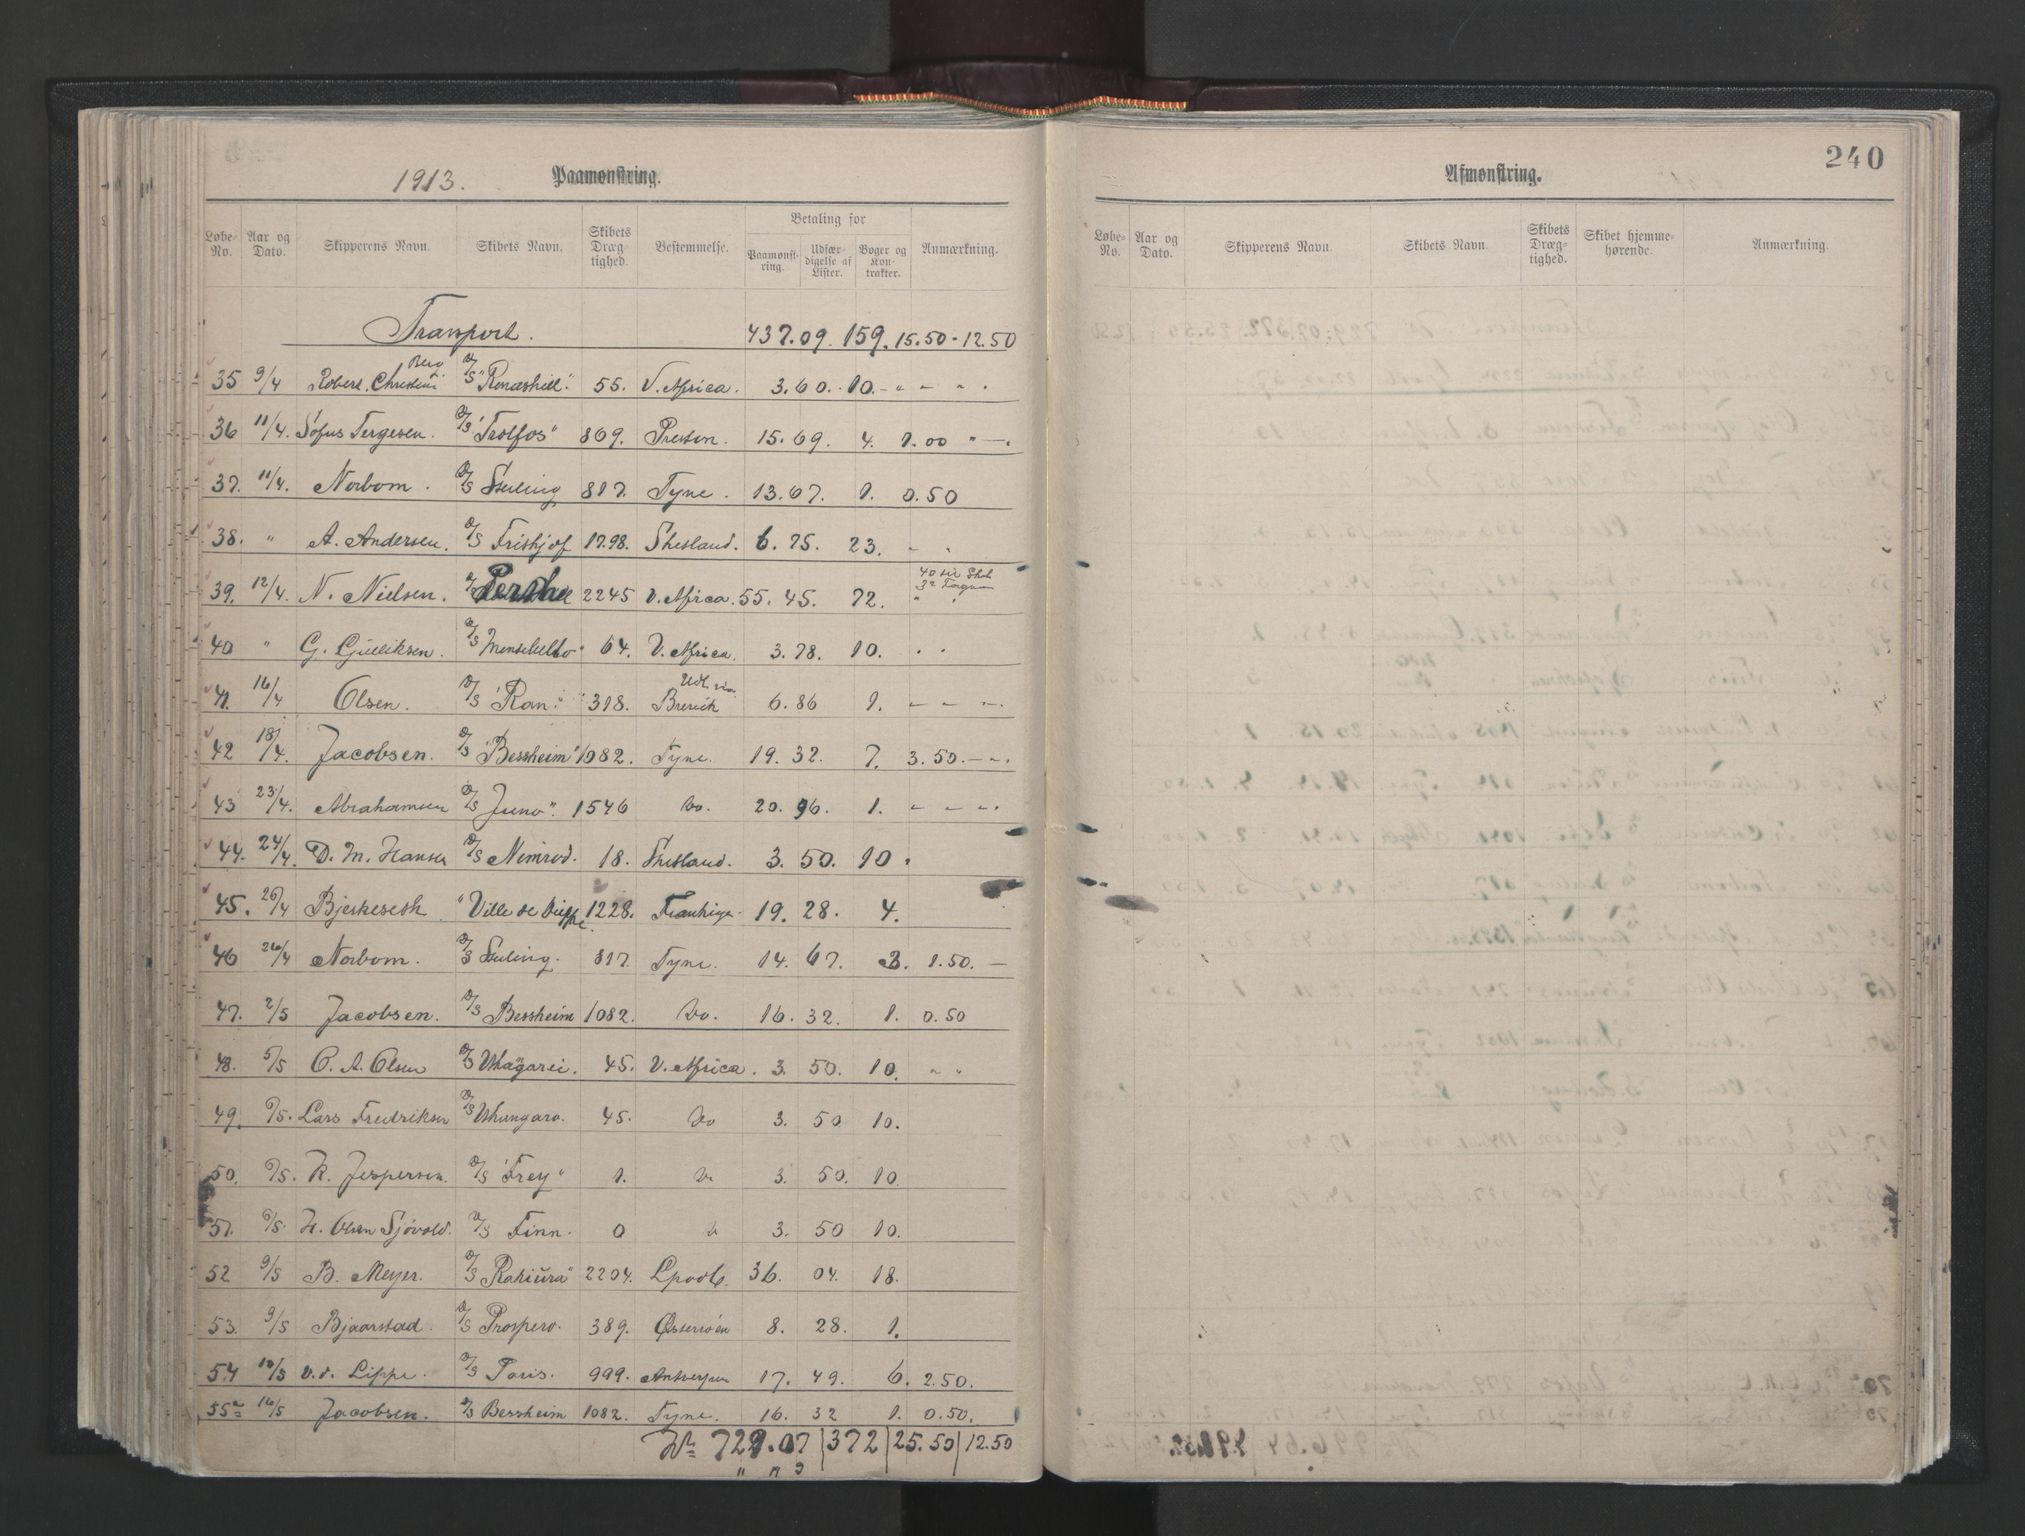 1913. Paamønstring.
Løbe-No. Aar og Dato. Skipperens Navn. Skibets Navn. Skibets Dræg-tighed. Bestemmelse. Betaling for Paamønst-ring. Udfær-digelse af Lister. Bøger og Kon-trakter. Anmærkning.
Transport. 437.09. 159. 15.50 - 12.50
35 9/4 Robert Christian Berg D/S "Ronashill" 55. V. Africa. 3.60. 10. - " - " .
36 11/4. Sofus Tergesen. D/S "Trolfos" 869. Preston. 15.69. 4. 1.00 " - .
37. 11/4. Norbom. D/S Sterling 817. Tyne. 13.67. 1. 0.50
38. " A. Andersen. D/S Fritjof 17.98. Shetland. 6.75. 23. - "
39. 12/4. N. Nielsen. D/S 2245 V. Africa. 55.45. 72.
40 " G. Gulliksen. D/S 64. V. Africa. 3.78. 10. . .
41. 16/4 Olsen. D/S "Ran" 318. Brevik 6.86 1. - - - .
42 18/4. Jacobsen. D/S "Bessheim" 1082. Tyne. 19.32. 7. 3.50. - - .
43 23/4. Abrahamsen D/S "Juno" 1546 Do. 20.96. 1. - - - .
44. 24/4. D. M. Hansen D/S Nimrod. 18. Shetland. 3.50. 10 .
45. 26/4 "Ville de Dieppe. 1228. 19.28. 4.
46 26/4 Norbom. D/S Sterling. 817. Tyne. 14.67. 3. 1.50. -
47. 2/5 Jacobsen. D/S Bessheim 1082. Do. 16.32. 1. 0.50
48. 5/5 O. A. Olsen D/S 45. V. Africa. 3.50. 10. " "
49. 6/5. Lars Fredriksen D/S 45. Do 3.50 10.
50. 6/5. K. Jespersen. D/S "Frey" 1. Do 3.50. 10.
51. 6/5. H. Olsen Sjövold. D/S Finn. 0 Do 3.50 10.
52 9/5 B. Meyer. D/S Rakiura" 2204. Lpool. 36.04. 18.
53. 9/5 Bjaarstad. D/S Prospero. 389. Østersöen 8.28. 1.
54 10/5 v.d. Lippe. D/S Paris. 999. Antverpen 17.49. 6. 2.50.
55 16/5 Jacobsen. D/S Bessheim 1082. Tyne. 16.32 1. 0.50.
Kr 729.07 | 372 | 25.50 | 12.50
240
Afmønstring.
Løbe-No. Aar og Dato. Skipperens Navn. Skibets Navn. Skibets Dræg-tighed. Skibet hjemme-hørende. Anmærkning.